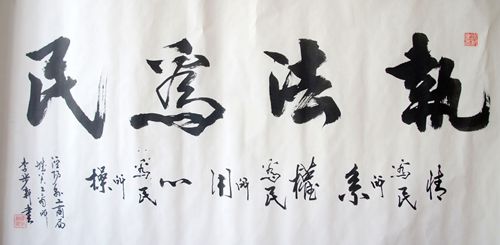 執法為民
情為民所系權為民所用心為民所操
工商局
書